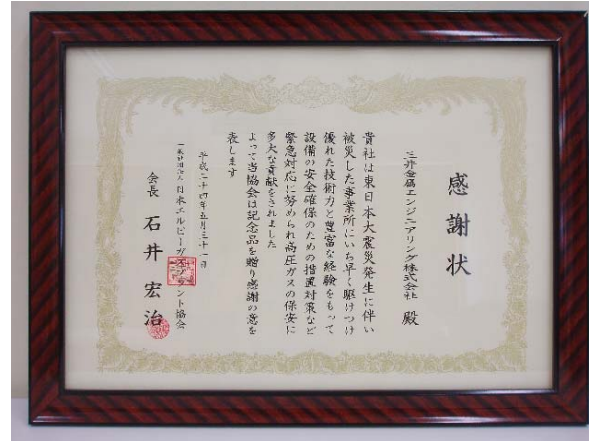 感謝状
三井金属エンジニアリング株式会社 殿
貴社は東日本大震災発生に伴い
被災した事業所にいち早く駆けつけ
優れた技術力と豊富な経験をもって
設備の安全確保のための措置対策など
緊急対応に努められ高圧ガスの保安に
多大な貢献をされました
よって当協会は記念品を贈り感謝の意を
表します
平成二十四年五月三十一日
一般社団法人 日本エルピーガスプラント協会
会長 石井宏治